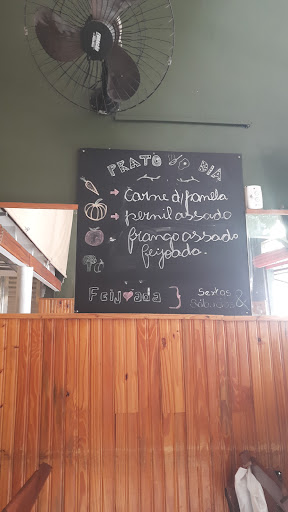 PRATO DO DIA
Carne d/panela
pernil assado
frango assado
feijoada.
Feijoada } Sextas &
Sábados